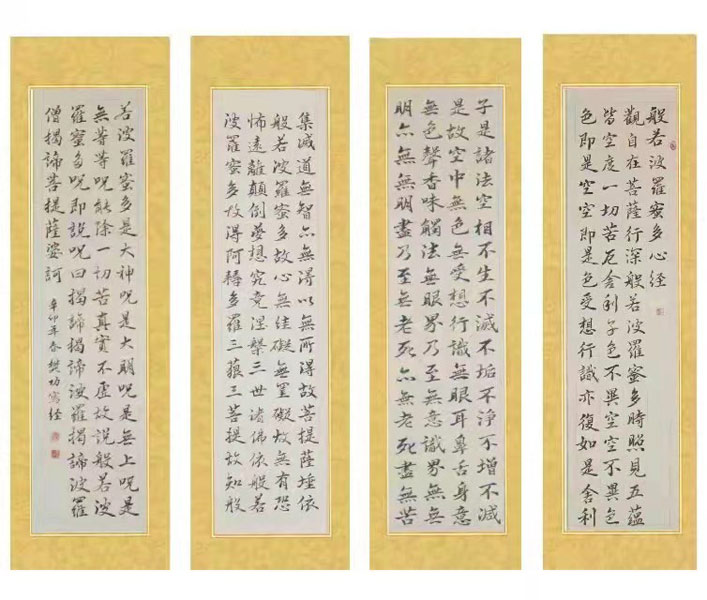 般若波羅蜜多心經
觀自在菩薩行深般若波羅蜜多時照見五蘊
皆空度一切苦厄舍利子色不異空空不異色
色即是空空即是色受想行識亦復如是舍利
子是諸法空相不生不滅不垢不淨不增不減
是故空中無色無受想行識無眼耳鼻舌身意
無色聲香味觸法無眼界乃至無意識界無無
明亦無無明盡乃至無老死亦無老死盡無苦
集滅道無智亦無得以無所得故菩提薩埵依
般若波羅蜜多故心無罣礙無罣礙故無有恐
怖遠離顛倒夢想究竟涅槃三世諸佛依般若
波羅蜜多故得阿耨多羅三藐三菩提故知般
若波羅蜜多是大神呪是大明呪是無上呪是
無等等呪能除一切苦真實不虛故說般若波
羅蜜多呪即說呪曰揭諦揭諦波羅揭諦波羅
僧揭諦菩提薩婆訶 辛卯年春樊功寫經